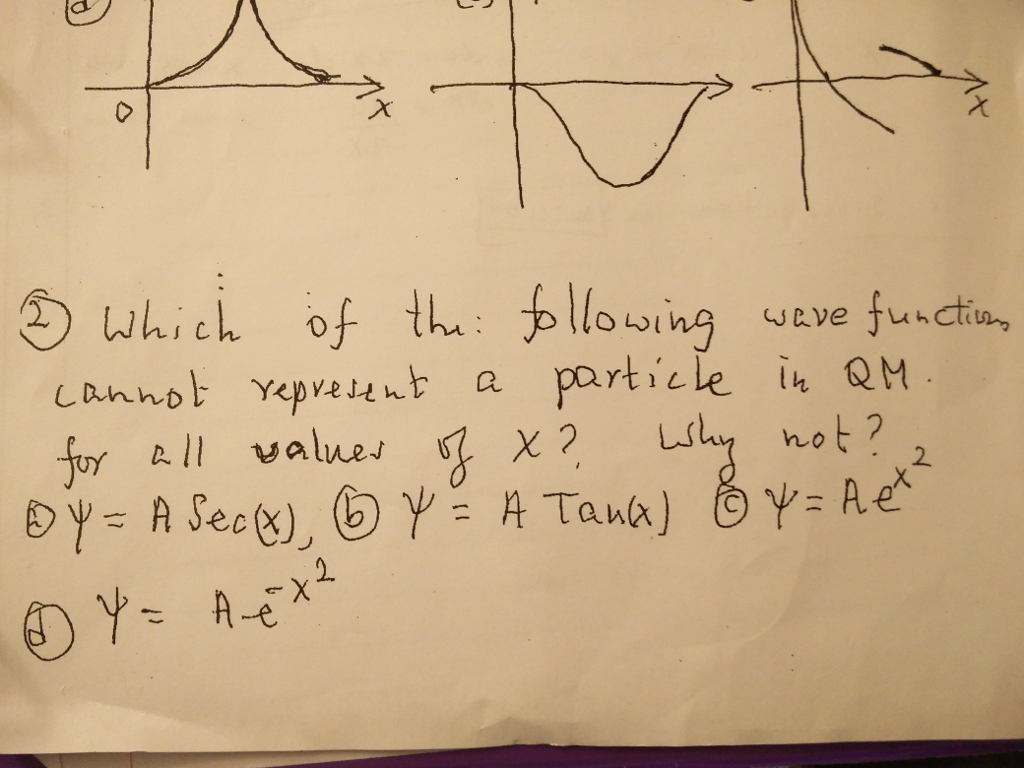 0 x x
② Which of the: following wave functions
cannot represent a particle in QM.
for all values of x? Why not?
ⓐ ψ = A Sec(x), ⓑ ψ = A Tan(x) ⓒ ψ = A e^x²
ⓓ ψ = A e^-x²